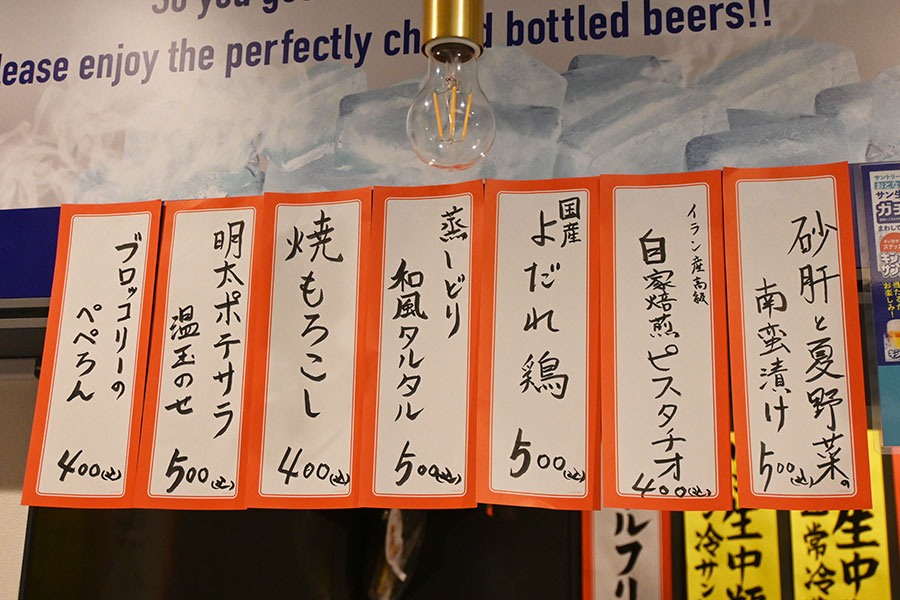 So you
lease enjoy the perfectly ch d bottled beers!!
砂肝と夏野菜の
南蛮漬け
500(込)
イラン産高級
自家焙煎ピスタチオ
400(込)
国産
よだれ鶏
500(込)
蒸しどり
和風タルタル
500(込)
焼もろこし
400(込)
明太ポテサラ
温玉のせ
500(込)
ブロッコリーの
ぺぺろん
400(込)
サントリー
サン生
ガ
まわして
お楽しみ!
生中
常冷
生中瓶
冷サン
ルフリ